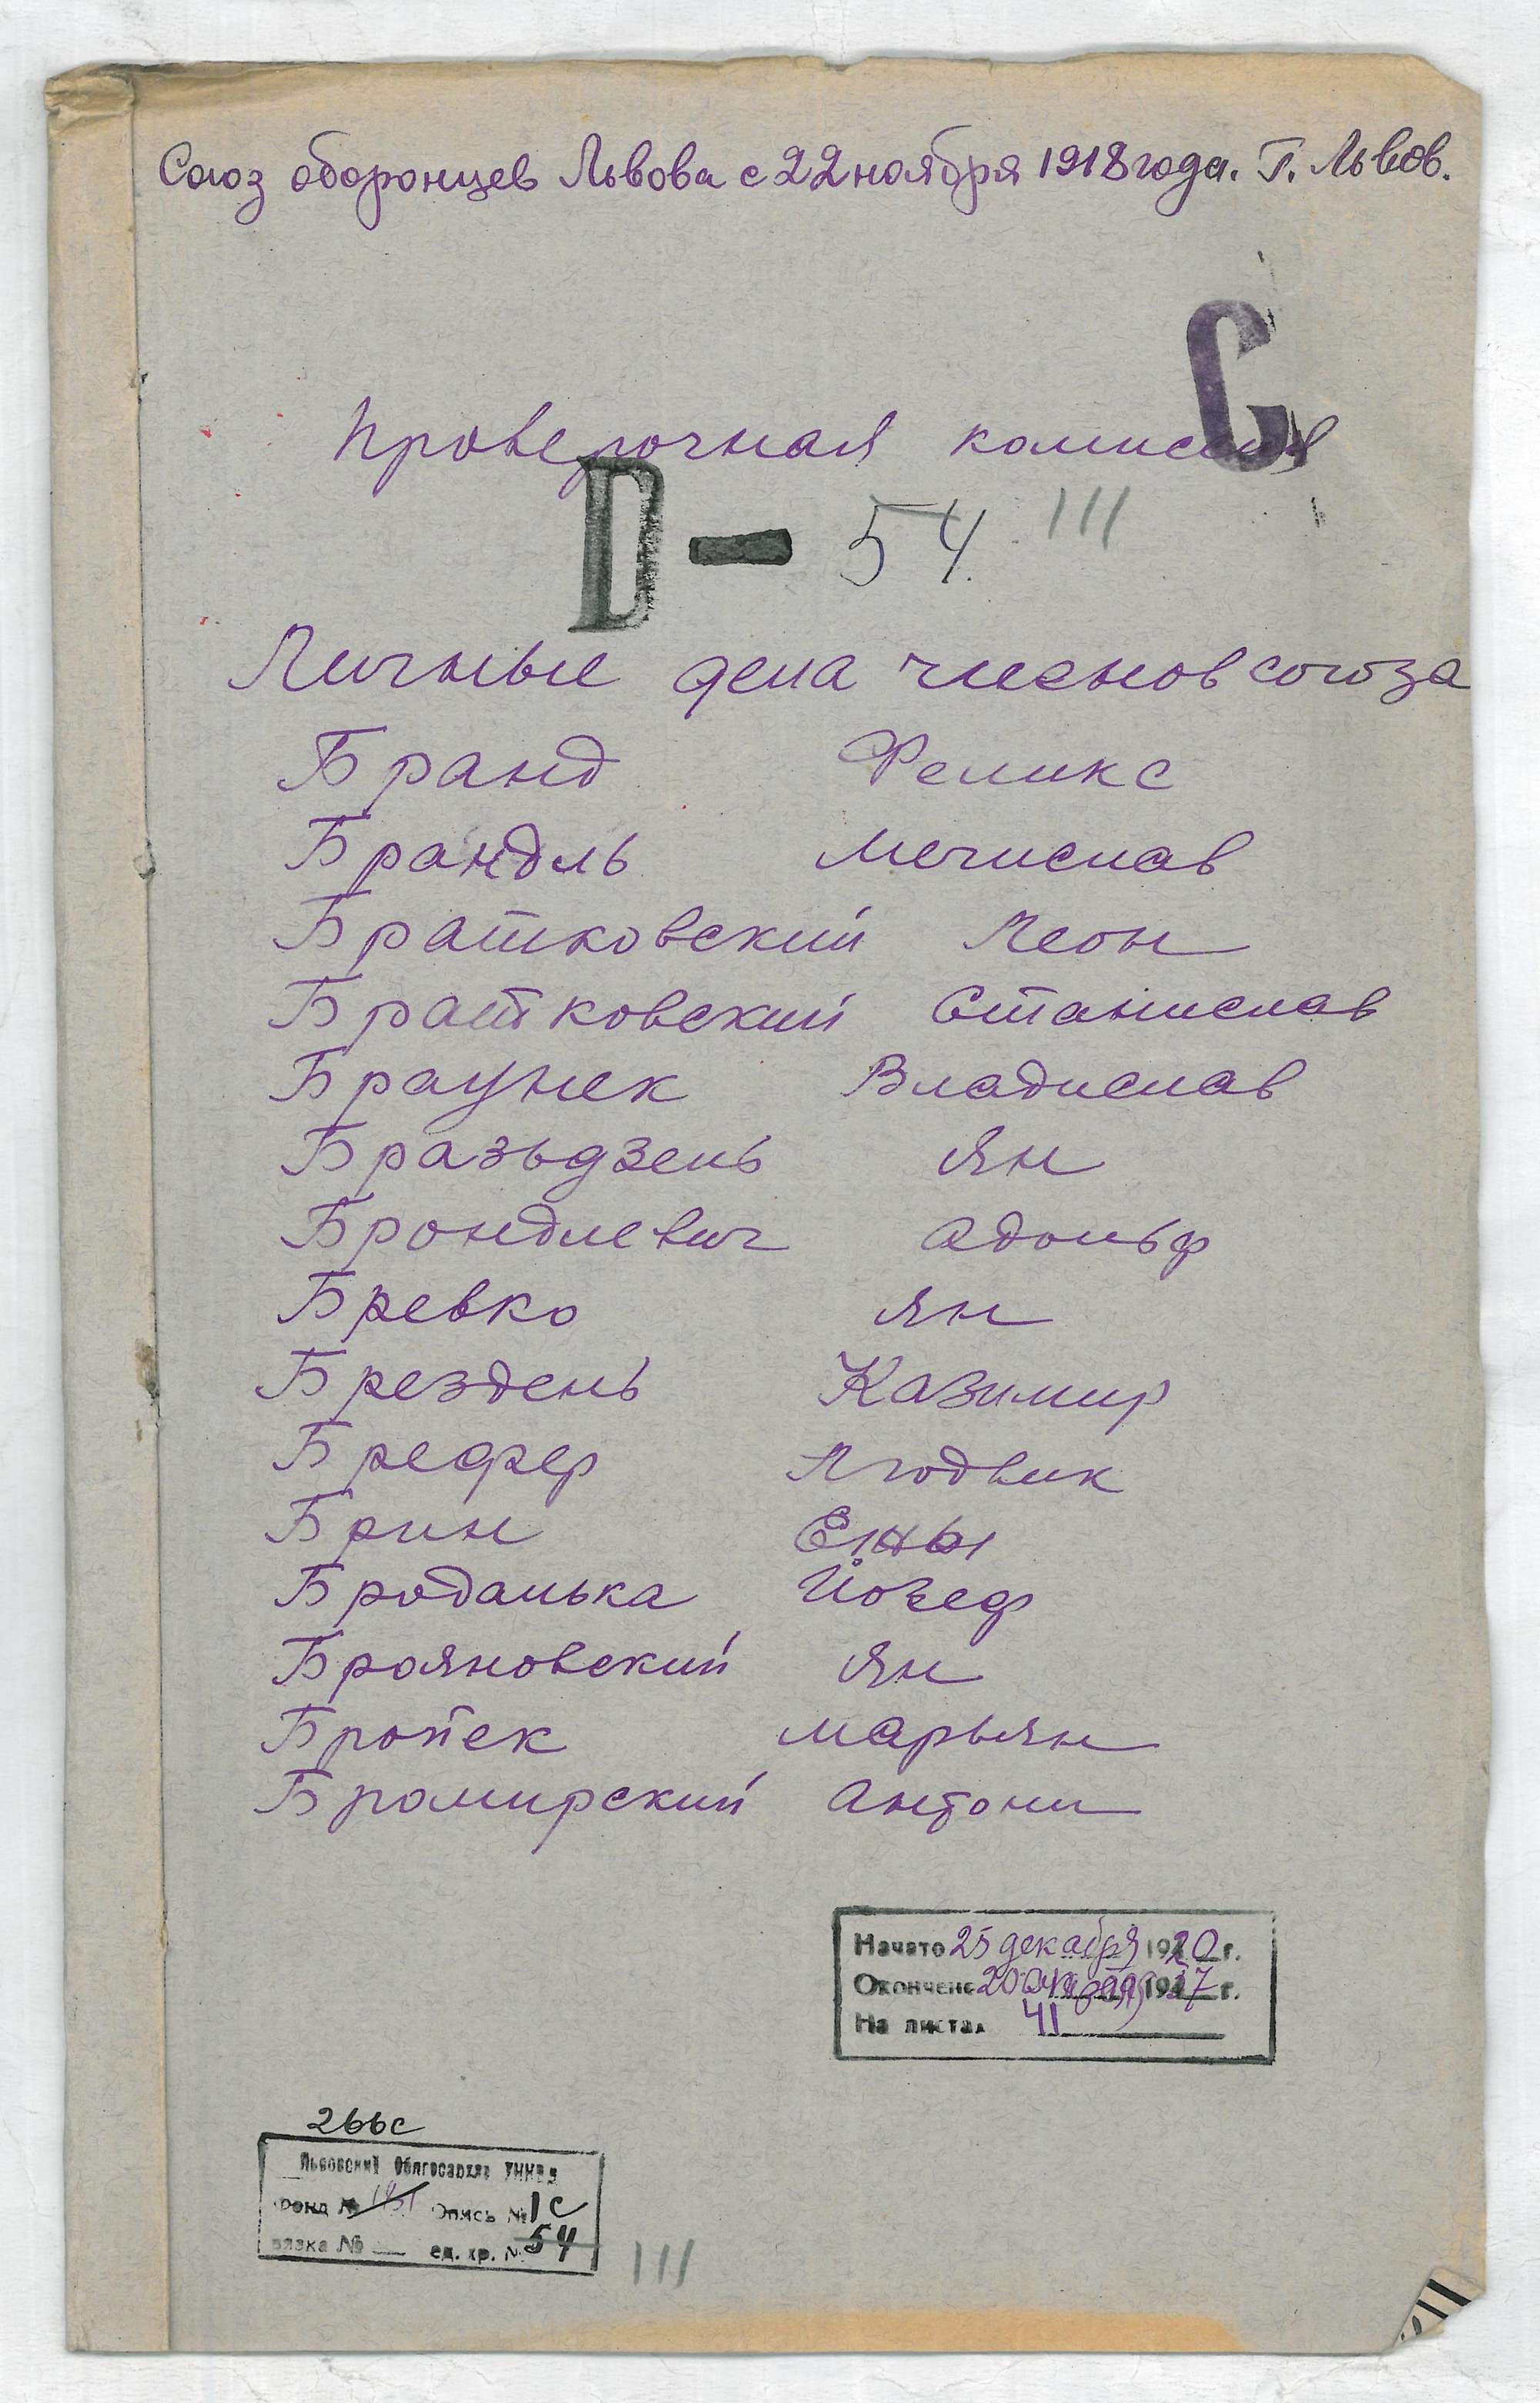 Союз оборонцев Львова с 22 ноября 1918 года. Г. Львов.
С
Проверочная комиссия
D — 54 III
Личные дела членов союза
Бранд Феликс
Брандль Мечислав
Братковский Леон
Братковский Станислав
Браунек Владислав
Бразьдзень Ян
Брондлевич Адольф
Бревко Ян
Брездень Казимир
Брефер Людвик
Брин Ежы
Броданька Йозеф
Брояновский Ян
Марьян
Бромирский Антони
Начато 25 декабря 1920 г.
Окончено 20 октября 1937 г.
На листах 41
266с
Львовский Облгосархив УНКВД
Фонд № Опись № 1с
вязка № — ед. хр. № 54
III